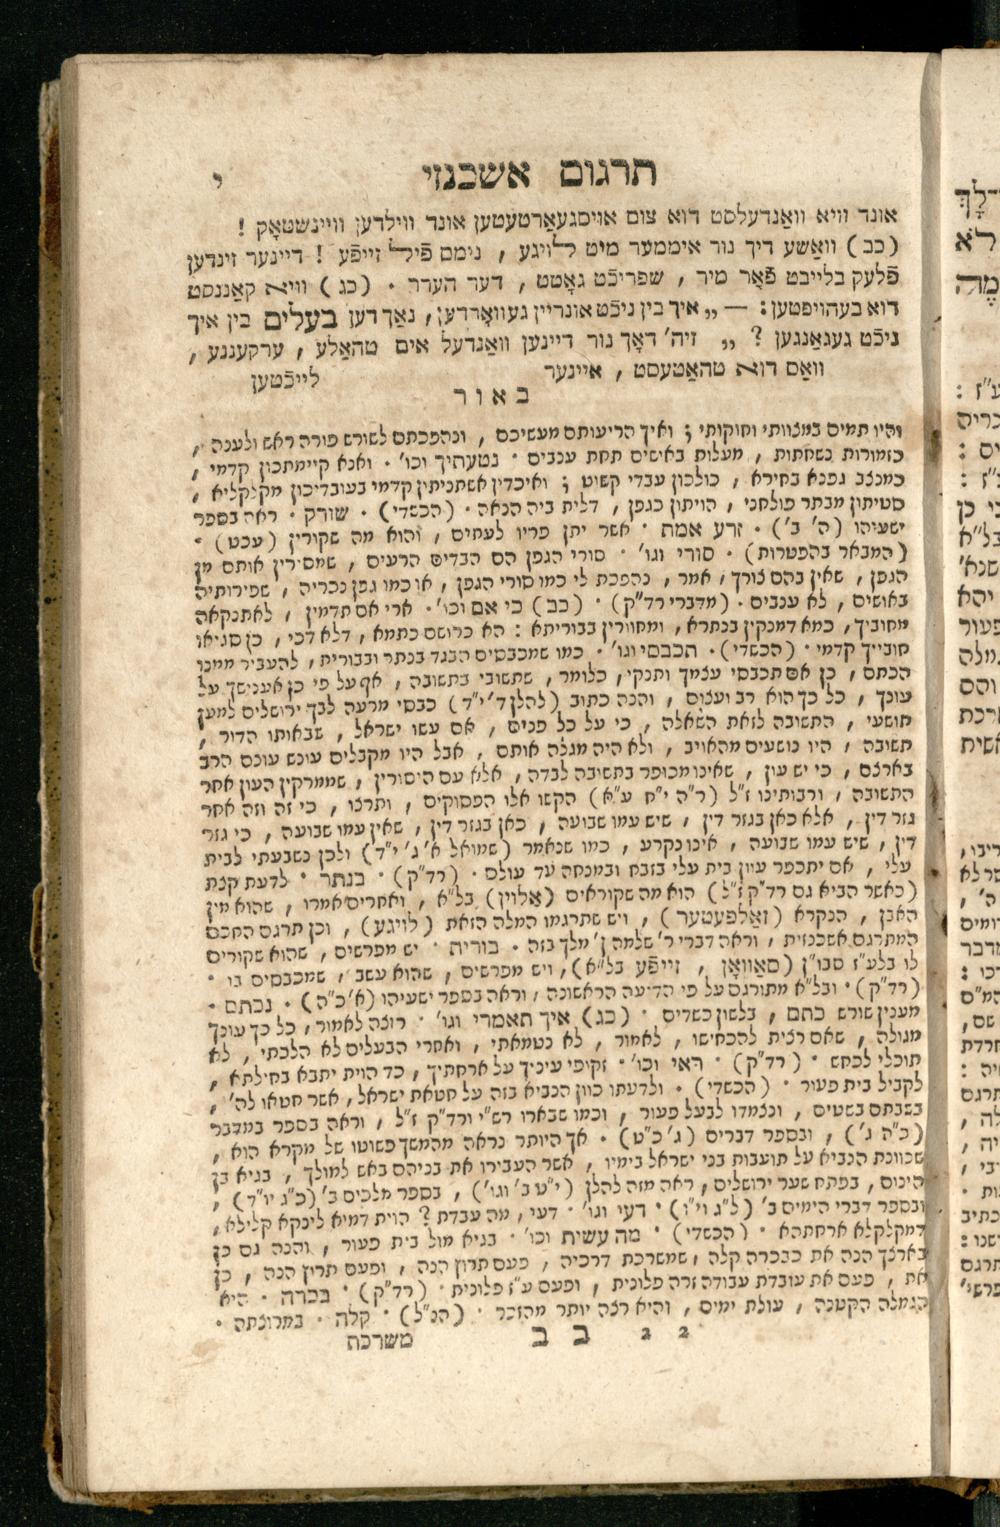 תרגום אשכנזי
י
אונד וויא וואַנדעלסט דוא צום אויסגעאַרטעטען אונד ווילדען וויינשטאָק !
(כב) וואַשע דיך נור איממער מיט לויגע , נימם פֿיל זייפֿע ! דיינער זינדען
פֿלעק בלייבט פֿאָר מיר , שפריכֿט גאָטט , דער הערר . (כג) וויא קאַננסט
דוא בעהויפטען : — „ איך בין ניכֿט אונריין געוואָרדען , נאַך דען בעלים בין איך
ניכֿט געגאַנגען ? „ זיה' דאָך נור דיינען וואַנדעל אים טהאַלע , ערקעננע ,
וואַס דוא טהאַטעסט , איינער לייכֿטען
באור
והיו תמים במצותי וחוקותי ; ואיך הריעותם מעשיכם , ונהפכתם לשורש פורה ראש ולענה ,
כזמורות נשחתות , מעלות באישים תחת ענבים . נטעתיך וכו' . ואנא קיימתכון קדמי ,
כמנצב גפנא בחירא , כולכון עבדי קשוט ; ואיכדין אשתניתין קדמי בעובדיכון מקלקליא ,
סטיתון מבתר פולחני , הויתון כגפן , דלית ביה הנאה . (הכשדי) . שורק . ראה בספר
ישעיהו (ה' ב') . זרע אמת . אשר יתן פריו לעתים , והוא מה שקורין (עכט) .
(המבאר בהפטרות) . סורי וגו' . סורי הגפן הם הבדים הרעים , שמסירין אותם מן
הגפן , שאין בהם צורך , אמר , נהפכת לי כמו סורי הגפן , או כמו גפן נכריה , שפירותיה
באושים , לא ענבים . (מדברי רד"ק) . (כב) כי אם וכו' . ארי אם תדמין , לאתנקאה
מחוביך , כמא דמנקין בנתרא , ומחוורין בבוריתא : הא כרושם כתמא , דלא דכי , כן סגיאו
חובייך קדמי . (הכשדי) . תכבסי וגו' . כמו שמכבסים הבגד בנתר ובבורית , להעביר ממנו
הכתם , כן אם תכבסי עצמך ותנקי , כלומר , שתשובי בתשובה , אף על פי כן אענישך על
עונך , כל כך הוא רב ועצום , והנה כתוב (להלן ד' י"ד) כבסי מרעה לבך ירושלים למען
תושעי , התשובה לזאת השאלה , כי על כל פנים , אם עשו ישראל , שבאותו הדור ,
תשובה , היו נושעים מהאויב , ולא היה מגלה אותם , אבל היו מקבלים עונש עונם הרב
בארצם , כי יש עון , שאינו מכופר בתשובה לבדה , אלא עם היסורין , שממרקין העון אחר
התשובה , ורבותינו ז"ל (ר"ה י"ח ע"א) הקשו אלו הפסוקים , ותרצו , כי זה וזה אחר
גזר דין , אלא כאן בגזר דין , שיש עמו שבועה , כאן בגזר דין , שאין עמו שבועה , כי גזר
דין , שיש עמו שבועה , אינו נקרע , כמו שנאמר (שמואל א' ג' י"ד) ולכן נשבעתי לבית
עלי , אם יתכפר עון בית עלי בזבח ובמנחה עד עולם . (רד"ק) . בנתר . לדעת קצת
(כאשר הביא גם רד"ק ז"ל) הוא מה שקוראים (אַלוין) בל"א , ואחרים אמרו , שהוא מין
האבן , הנקרא (זאַלפעטער) , ויש שתרגמו המלה הזאת (לויגע) , וכן תרגם החכם
המתרגם אשכנזית , וראה דברי ר' שלמה ן' מלך בזה . בורית . יש מפרשים , שהוא שקורים
לו בלע"ז סבו"ן (סאַוואָן , זייפֿע בל"א) , ויש מפרשים , שהוא עשב , שמכבסים בו .
(רד"ק) . ובל"א מתורגם על פי הדיעה הראשונה , וראה בספר ישעיהו (א' כ"ה) . נכתם .
מענין שורש כתם , בלשון כשדים . (כג) איך תאמרי וגו' . רוצה לאמור , כל כך עונך
מגולה , שאם רצית להכחישו , לאמור , לא נטמאתי , ואחרי הבעלים לא הלכתי , לא
תוכלי לכחש . (רד"ק) . ראי וכו' . זקופי עיניך על ארחתיך , כד הוית יתבא בחילתא ,
לקביל בית פעור . (הכשדי) . ולדעתו כוון הנביא בזה על חטאת ישראל , אשר חטאו לה' ,
בשבתם בשטים , ונצמדו לבעל פעור , וכמו שבארו רש"י ורד"ק ז"ל , וראה בספר במדבר
(כ"ה ג') , ובספר דברים (ג' כ"ט) . אך היותר נראה מהמשך פשוטו של מקרא הוא ,
שכוונת הנביא על תועבות בני ישראל בימיו , אשר העבירו את בניהם באש למולך , בגיא בן
הינום , בפתח שער ירושלים , ראה מזה להלן (י"ט ב' וגו') , בספר מלכים ב' (כ"ג יו"ד) ,
ובספר דברי הימים ב' (ל"ג וי"ו) . דעי וגו' . דעי , מה עבדת ? הוית דמיא לינקא קלילא ,
דמקלקלא ארחתהא . (הכשדי) . מה עשית וכו' . בגיא מול בית פעור , והנה גם כן
בארצך הנה את כבכרה קלה , שמשרכת דרכיה , פעם תרוץ הנה , ופעם תרוץ הנה , כן
את , פעם את עובדת עבודה זרה פלונית , ופעם ע"ז פלונית . (רד"ק) . בכרה . היא
הגמלה הקטנה , עולת ימים , והיא רצה יותר מהזכר . (הנ"ל) . קלה . במרוצתה .
2 2 ב ב משרכת